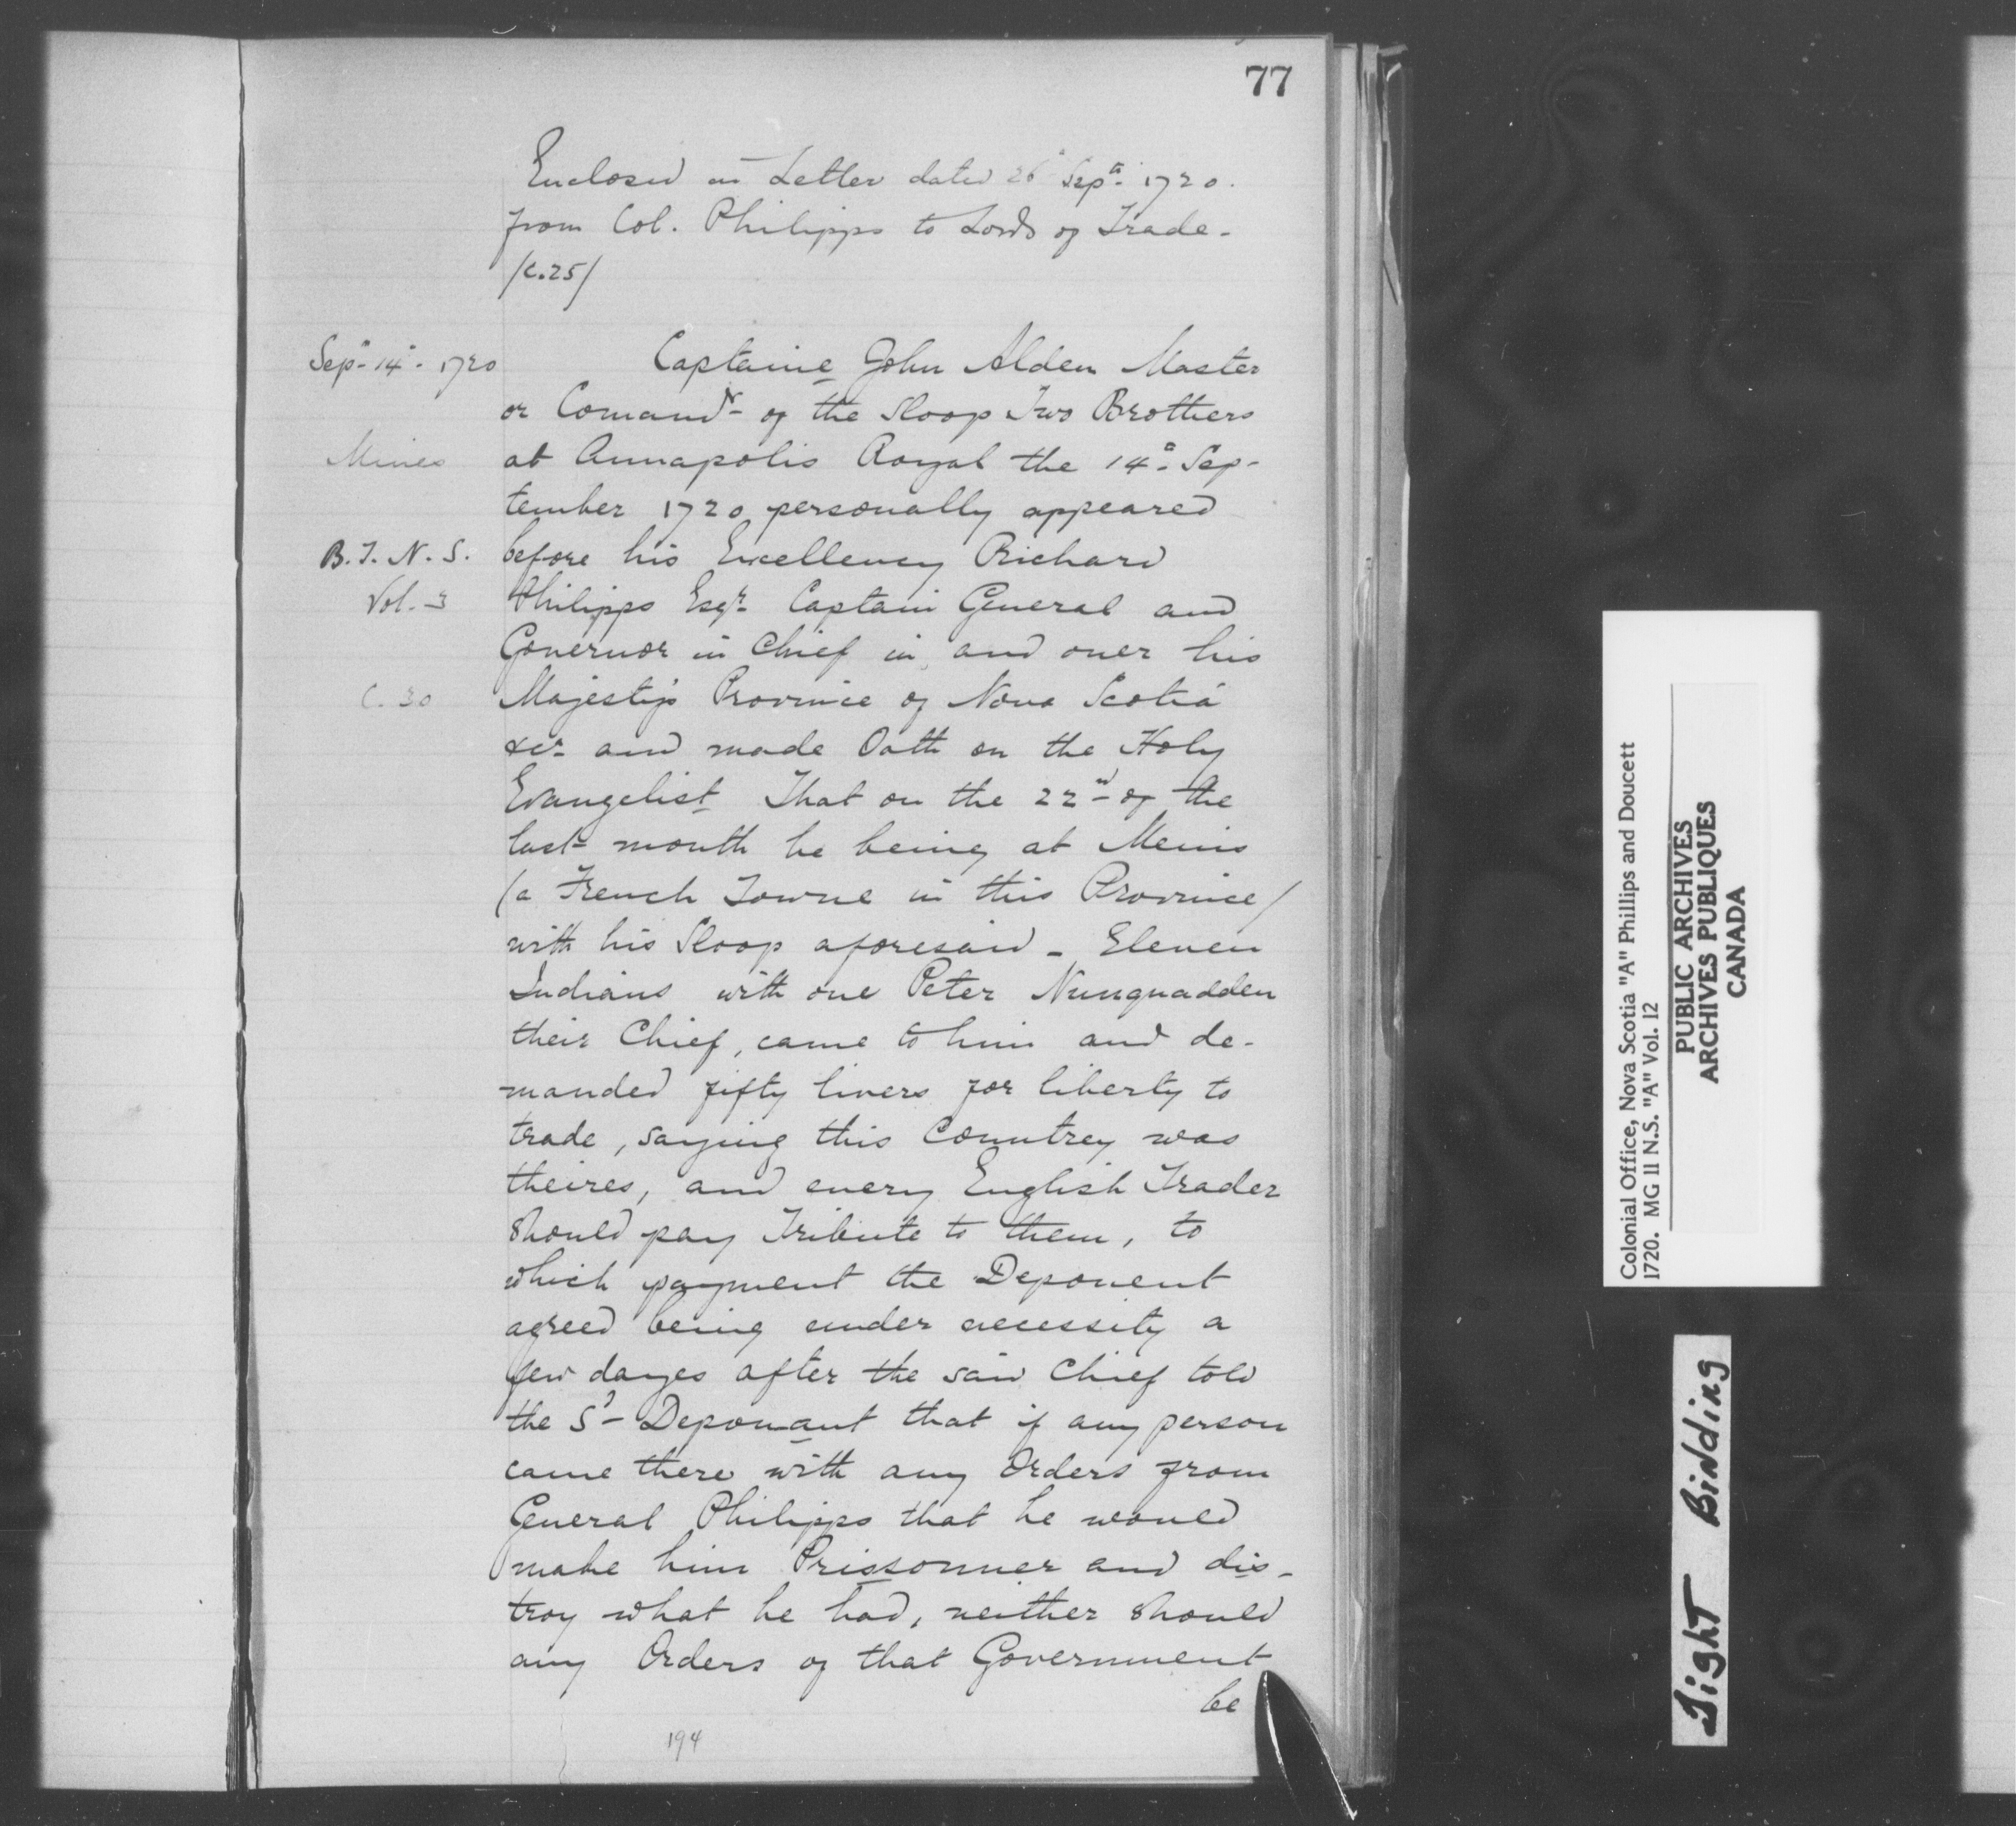 77
Enclosed in Letter dated 26 Sepr 1720.
from Col. Philipps to Lords of Trade -
/C.25/
Sepr 14th 1720
Captaine John Alden Master
or Comandr of the Sloop Two Brothers
Mines
at Annapolis Royal the 14th Sep-
tember 1720 personally appeared
B.T.N.S.
before his Excellency Richard
Vol. 3
Philipps Esqr Captain General and
Governor in Chief in and over his
C. 30
Majesty's Province of Nova Scotia
&cr and made Oath on the Holy
Evangelist That on the 22nd of the
last month he being at Menis
/a French Towne in this Province/
with his Sloop aforesaid - Eleven
Indians with one Peter Nunquadden
their Chief, came to him and de-
manded fifty livers for liberty to
trade, saying this Countrey was
theires, and every English Trader
should pay Tribute to them, to
which payment the Deponent
agreed being under necessity a
few dayes after the said Chief told
the Sd Deponant that if any person
came there with any Orders from
General Philipps that he would
make him Prissonner and dis-
troy what he had, neither should
any Orders of that Government
be
194
Colonial Office, Nova Scotia "A" Phillips and Doucett
1720. MG 11 N.S. "A" Vol. 12
PUBLIC ARCHIVES
ARCHIVES PUBLIQUES
CANADA
Tight Binding